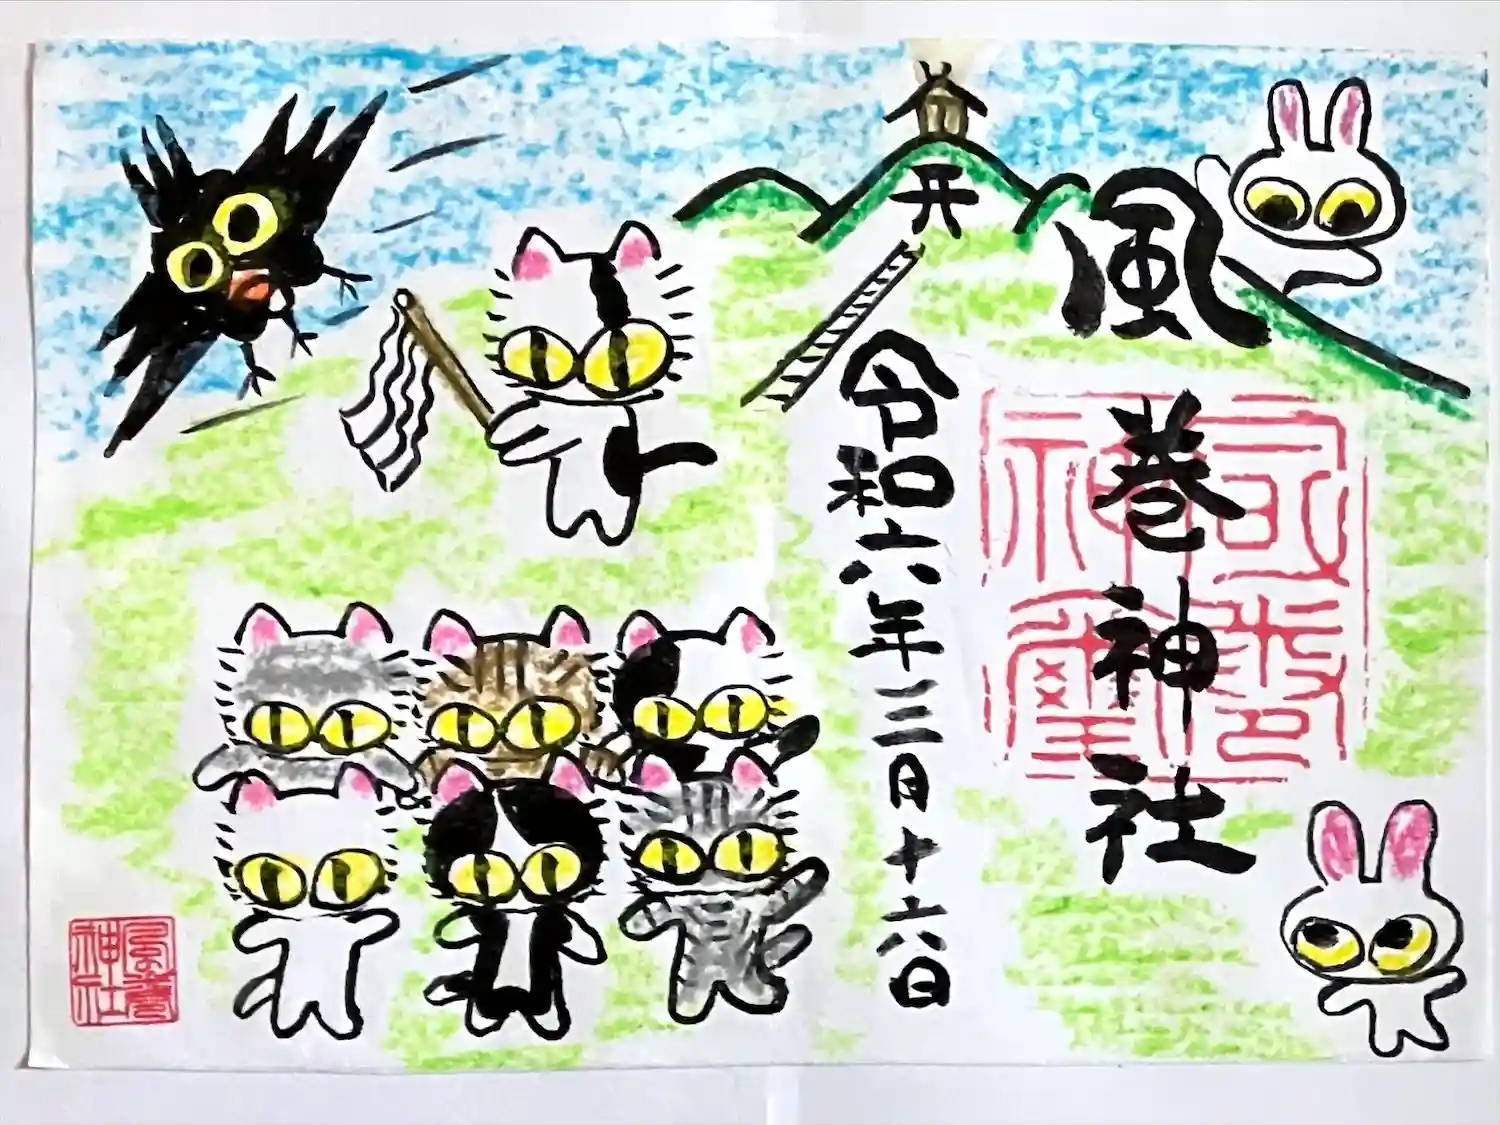 風巻神社
令和六年三月十六日
風巻神璽
風巻神社